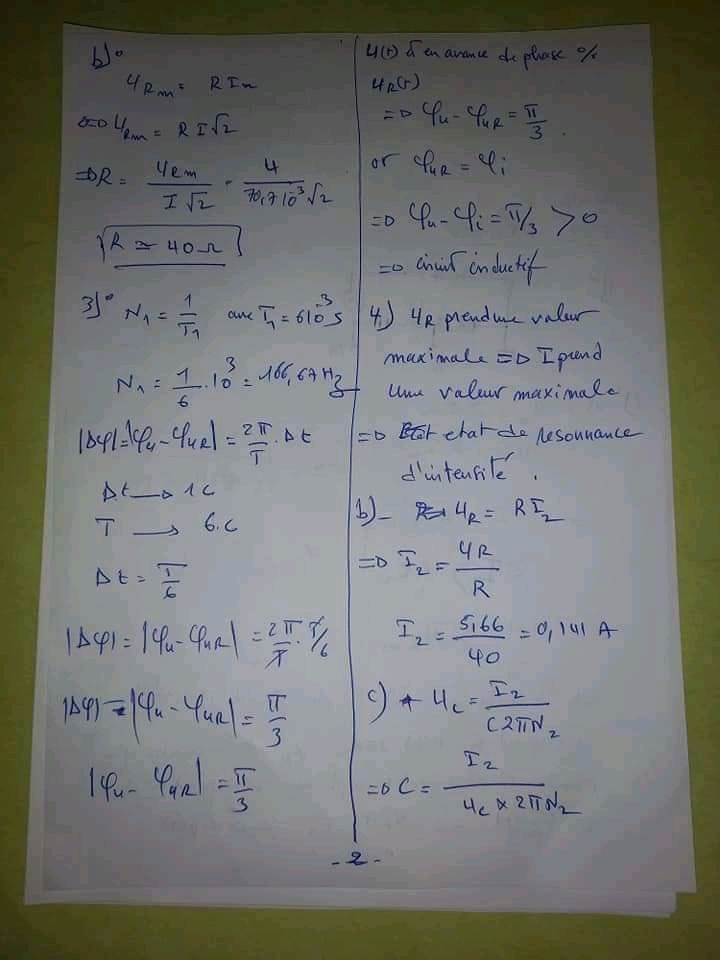 b)°
U_Rm = R I_m
⇔ U_Rm = R I√2
⇒ R = U_Rm / (I√2) = 4 / (70,7 10^-3 √2)
R ≃ 40 Ω
3)° N_1 = 1/T_1 avec T_1 = 6 10^-3 s
N_1 = 1/6 . 10^3 = 166,67 Hz
|Δφ| = |φ_u - φ_uR| = 2π/T . Δt
Δt → 1c
T → 6.c
Δt = T/6
|Δφ| = |φ_u - φ_uR| = 2π/T . T/6
|Δφ| = |φ_u - φ_uR| = π/3
|φ_u - φ_uR| = π/3
U(t) est en avance de phase %
U_R(t)
⇒ φ_u - φ_uR = π/3.
or φ_uR = φ_i
⇒ φ_u - φ_i = π/3 > 0
⇒ circuit inductif
4) U_R prend une valeur
maximale ⇒ I prend
une valeur maximale
⇒ etat de resonnance
d'intensité.
b)- U_R = R I_2
⇒ I_2 = U_R / R
I_2 = 5,66 / 40 = 0,141 A
c) U_C = I_2 / (C 2π N_2)
⇒ C = I_2 / (U_C × 2π N_2)
- 2 -